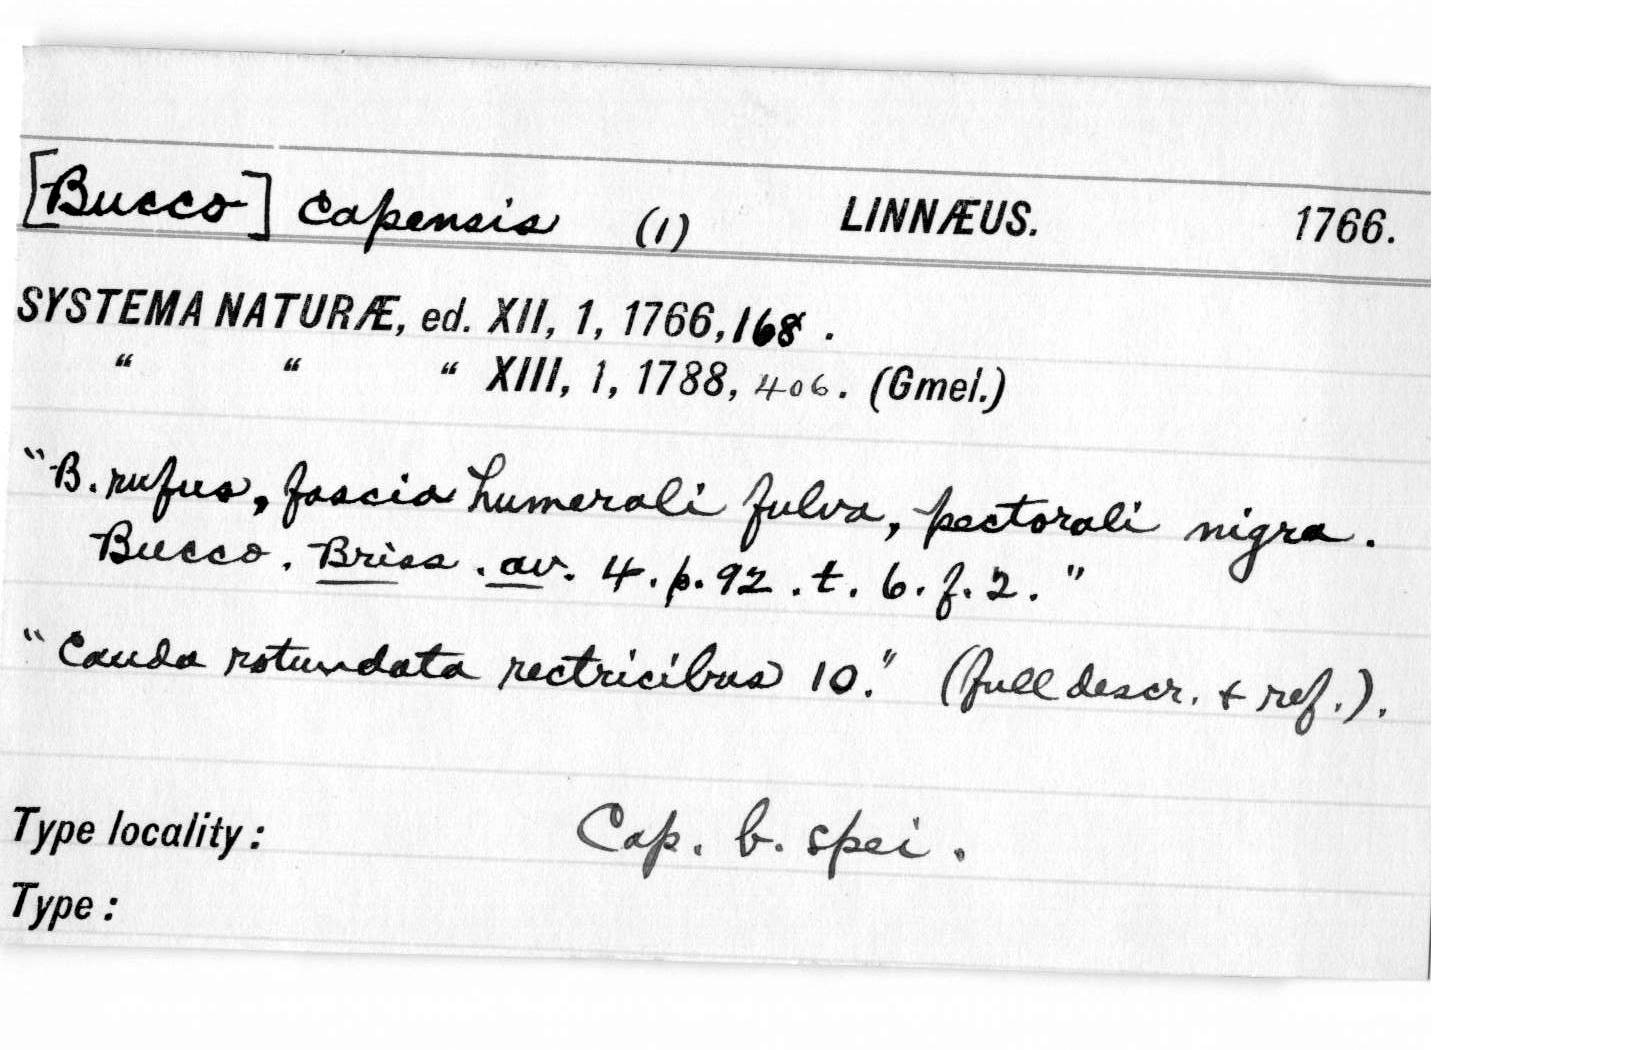 [Bucco] capensis (1) LINNÆUS. 1766.
SYSTEMA NATURÆ, ed. XII, 1, 1766, 168 .
" " " XIII, 1, 1788, 406. (Gmel.)
"B. rufus, fascia humerali fulva, pectorali nigra.
Bucco. Briss. av. 4. p. 92. t. 6. f. 2."
"Cauda rotundata rectricibus 10." (full descr. & ref.).
Type locality: Cap. b. spei.
Type: